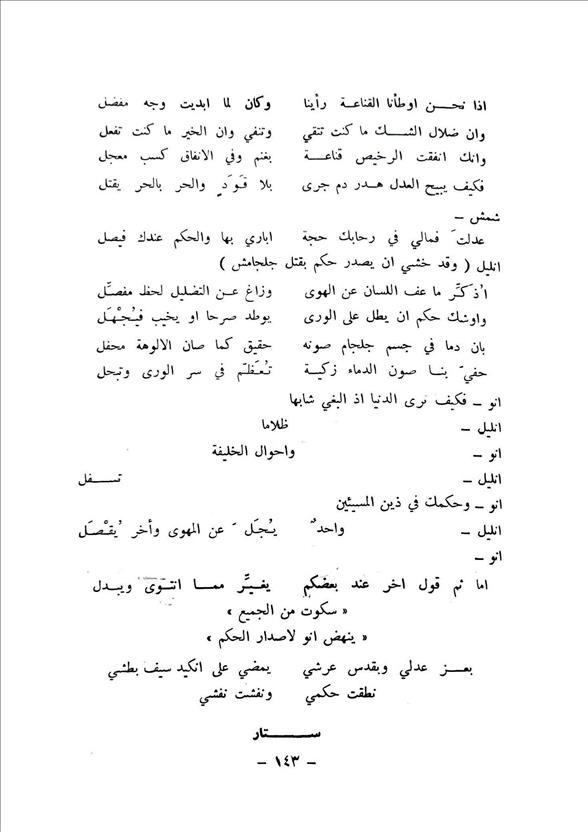 اذا نحـــن اوطأنا القناعـة رأينا وكان لما ابديت وجه مفضل
وان ضلال الشـــك ما كنت تتقي وتنفي وان الخير ما كنت تفعل
وانك انفقت الرخيص قناعـــة بغنم وفي الانفاق كسب معجل
فكيف يبيح العدل هـدر دم جرى بلا قَوَدٍ والحر بالحر يقتل
شمش –
عدلتَ فمالي في رحابك حجة اباري بها والحكم عندك فيصل
انليل ( وقد خشي ان يصدر حكم بقتل جلجامش )
اُذكَّر ما عف اللسان عن الهوى وزاغ عـن التضليل لحظ مفصَّل
واوشك حكم ان يطل على الورى يوطد صرحا او يخيب فيُجْهَل
بان دما في جسم جلجام صونه حقيق كما صان الالوهة محفل
حفيّ بنـا صون الدماء زكيـة تُعَظَّم في سر الورى وتبجل
انو – فكيف نرى الدنيا اذ البغي شابها
انليل – ظلاما
انو – واحوال الخليفة
انليل – تســـفل
انو – وحكمك في ذين المسيئين
انليل – واحدٌ يُجَلَ َ عن المهوى وأخر يُقْصَل
انو –
اما ثم قول اخر عند بعضكم يغيـِّر ممـا انتوى ويبـدل
« سكوت من الجميع »
« ينهض انو لاصدار الحكم »
بعـــز عدلي وبقدس عرشي يمضي على انكيد سيف بطشي
نطقت حكمي ونفشت نفشي
ســـــتار
– ١٤٣ –